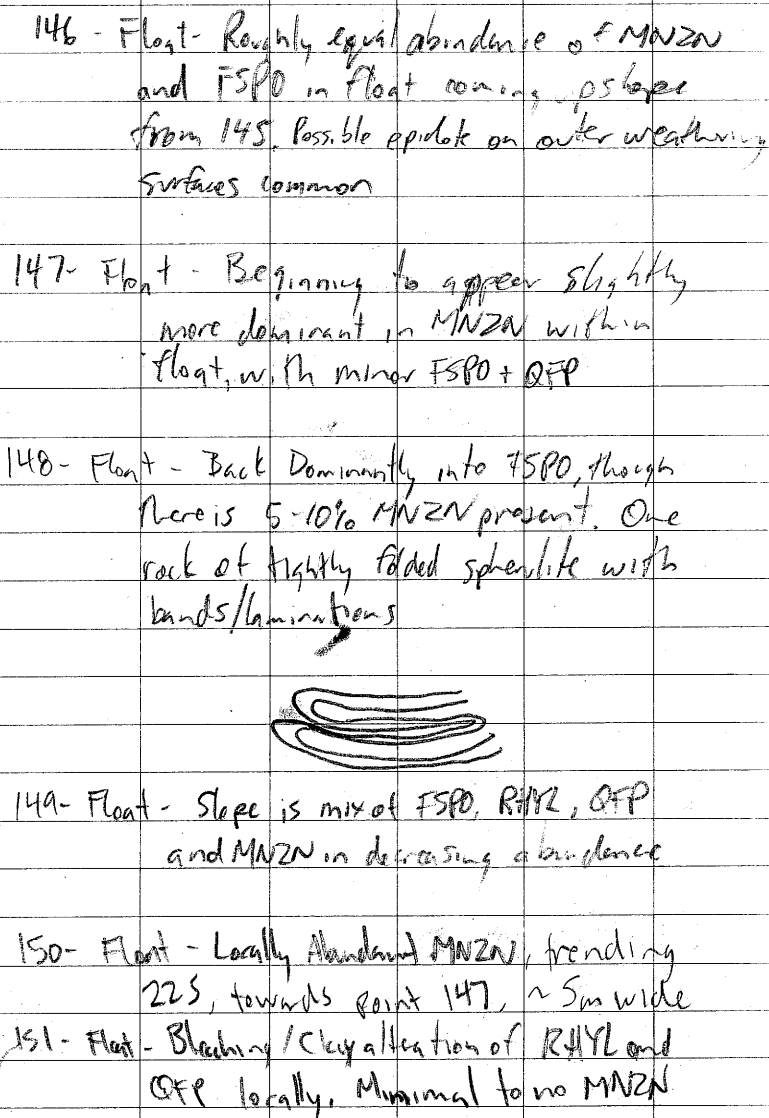 146 - Float - Roughly equal abundance of MNZN
and FSPO in float coming upslope
from 145. Possible epidote on outer weathering
surfaces common
147 - Float - Beginning to appear slightly
more dominant in MNZN within
float, with minor FSPO + QFP
148 - Float - Back Dominantly into FSPO, though
there is 5-10% MNZN present. One
rock of tightly folded spherulite with
bands/laminations
149 - Float - Slope is mix of FSPO, RHYL, QFP
and MNZN in decreasing abundance
150 - Float - Locally Abundant MNZN, trending
225, towards point 147, ~5m wide
151 - Float - Bleaching/Clay alteation of RHYL and
QFP locally. Minimal to no MNZN